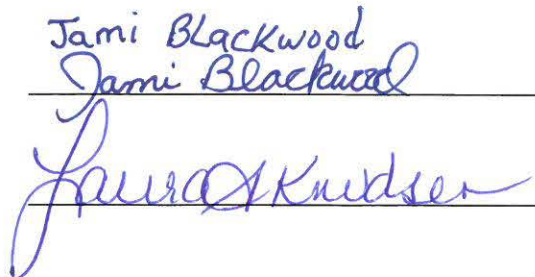 Jami BLackwood
Jami Blackwood
Laura A Knudsen